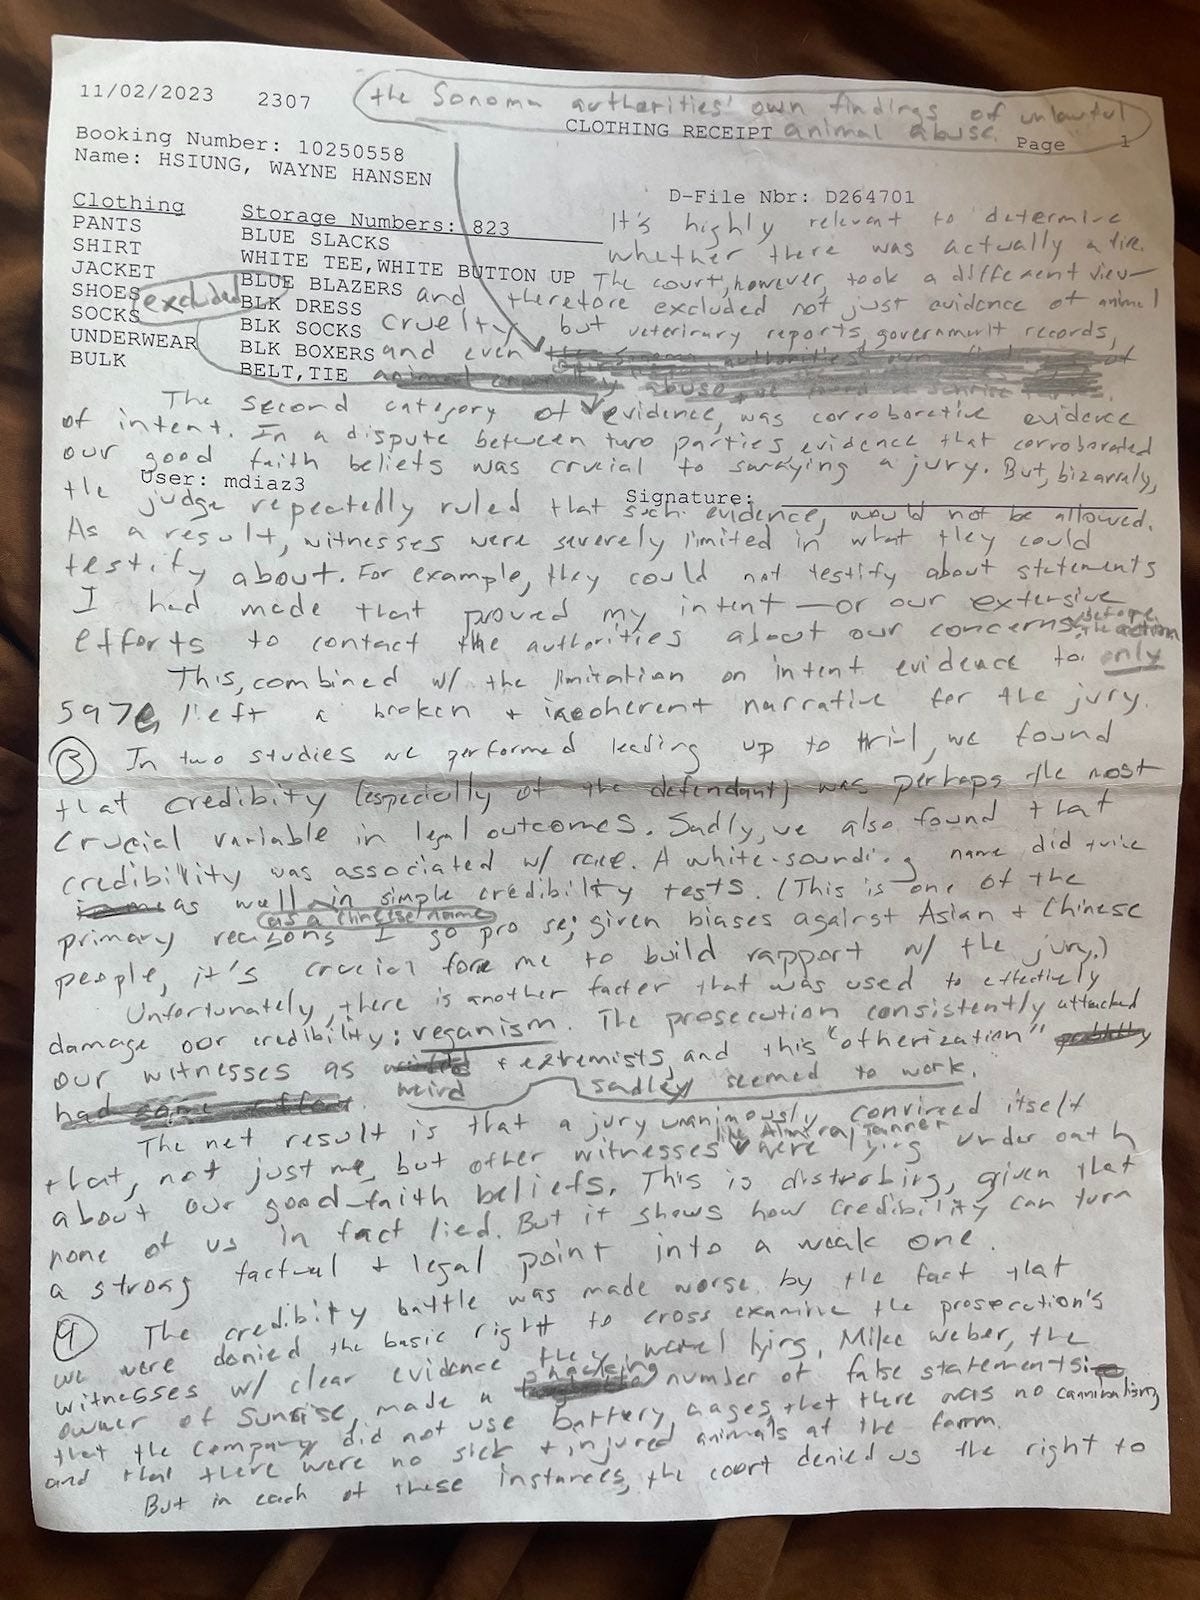 the Sonoma authorities' own findings of unlawful
11/02/2023 2307 CLOTHING RECEIPT animal abuse. Page 1
Booking Number: 10250558
Name: HSIUNG, WAYNE HANSEN
D-File Nbr: D264701
Clothing Storage Numbers: 823
PANTS BLUE SLACKS
SHIRT WHITE TEE,WHITE BUTTON UP
JACKET BLUE BLAZERS
SHOES BLK DRESS
SOCKS BLK SOCKS
UNDERWEAR BLK BOXERS
BULK BELT,TIE
It's highly relevant to determine
whether there was actually a fire.
The court, however, took a different view—
and therefore excluded not just evidence of animal
cruelty, but veterinary reports, government records,
and even
excluded
The second category of evidence, was corroborative evidence
of intent. In a dispute between two parties evidence that corroborated
our good faith beliefs was crucial to swaying a jury. But, bizarrely,
User: mdiaz3 Signature:
the judge repeatedly ruled that such evidence, would not be allowed.
As a result, witnesses were severely limited in what they could
testify about. For example, they could not testify about statements
I had made that proved my intent—or our extensive
efforts to contact the authorities about our concerns before the action
This, combined w/ the limitation on intent evidence to only
597e, left a broken + incoherent narrative for the jury.
③ In two studies we performed leading up to trial, we found
that credibity (especially of the defendant) was perhaps the most
crucial variable in legal outcomes. Sadly, we also found that
credibility was associated w/ race. A white-sounding name did twice
as well in simple credibility tests. (This is one of the
as a Chinese name
primary reasons I go pro se; given biases against Asian + Chinese
people, it's crucial for me to build rapport w/ the jury.)
Unfortunately, there is another factor that was used to effectively
damage our credibility: veganism. The prosecution consistently attacked
our witnesses as + extremists, and this "otherization"
weird sadley seemed to work.
The net result is that a jury unanimously convinced itself
that, not just me, but other witnesses like Almira Tanner were lying under oath
about our good-faith beliefs. This is disturbing, given that
none of us in fact lied. But it shows how credibility can turn
a strong factual + legal point into a weak one.
④ The credibity battle was made worse by the fact that
we were denied the basic right to cross examine the prosecution's
witnesses w/ clear evidence they were lying. Mike Weber, the
owner of Sunrise, made a shocking number of false statements:
that the company did not use battery cages, that there was no cannibalism,
and that there were no sick + injured animals at the farm.
But in each of these instances, the court denied us the right to